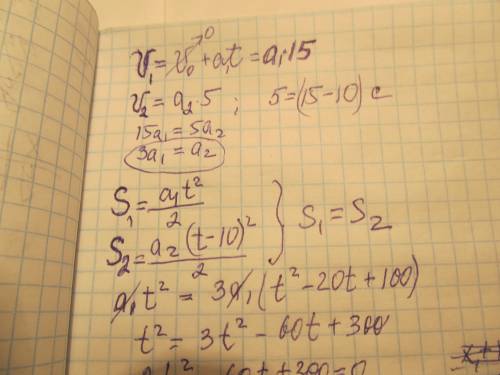 V₁ = V₀→⁰ + a₁t = a₁·15
V₂ = a₂·5 ; 5 = (15 - 10) c
15a₁ = 5a₂
3a₁ = a₂
S₁ = a₁t²/2
S₂ = a₂(t-10)²/2 } S₁ = S₂
a₁t² = 3a₁(t² - 20t + 100)
t² = 3t² - 60t + 300